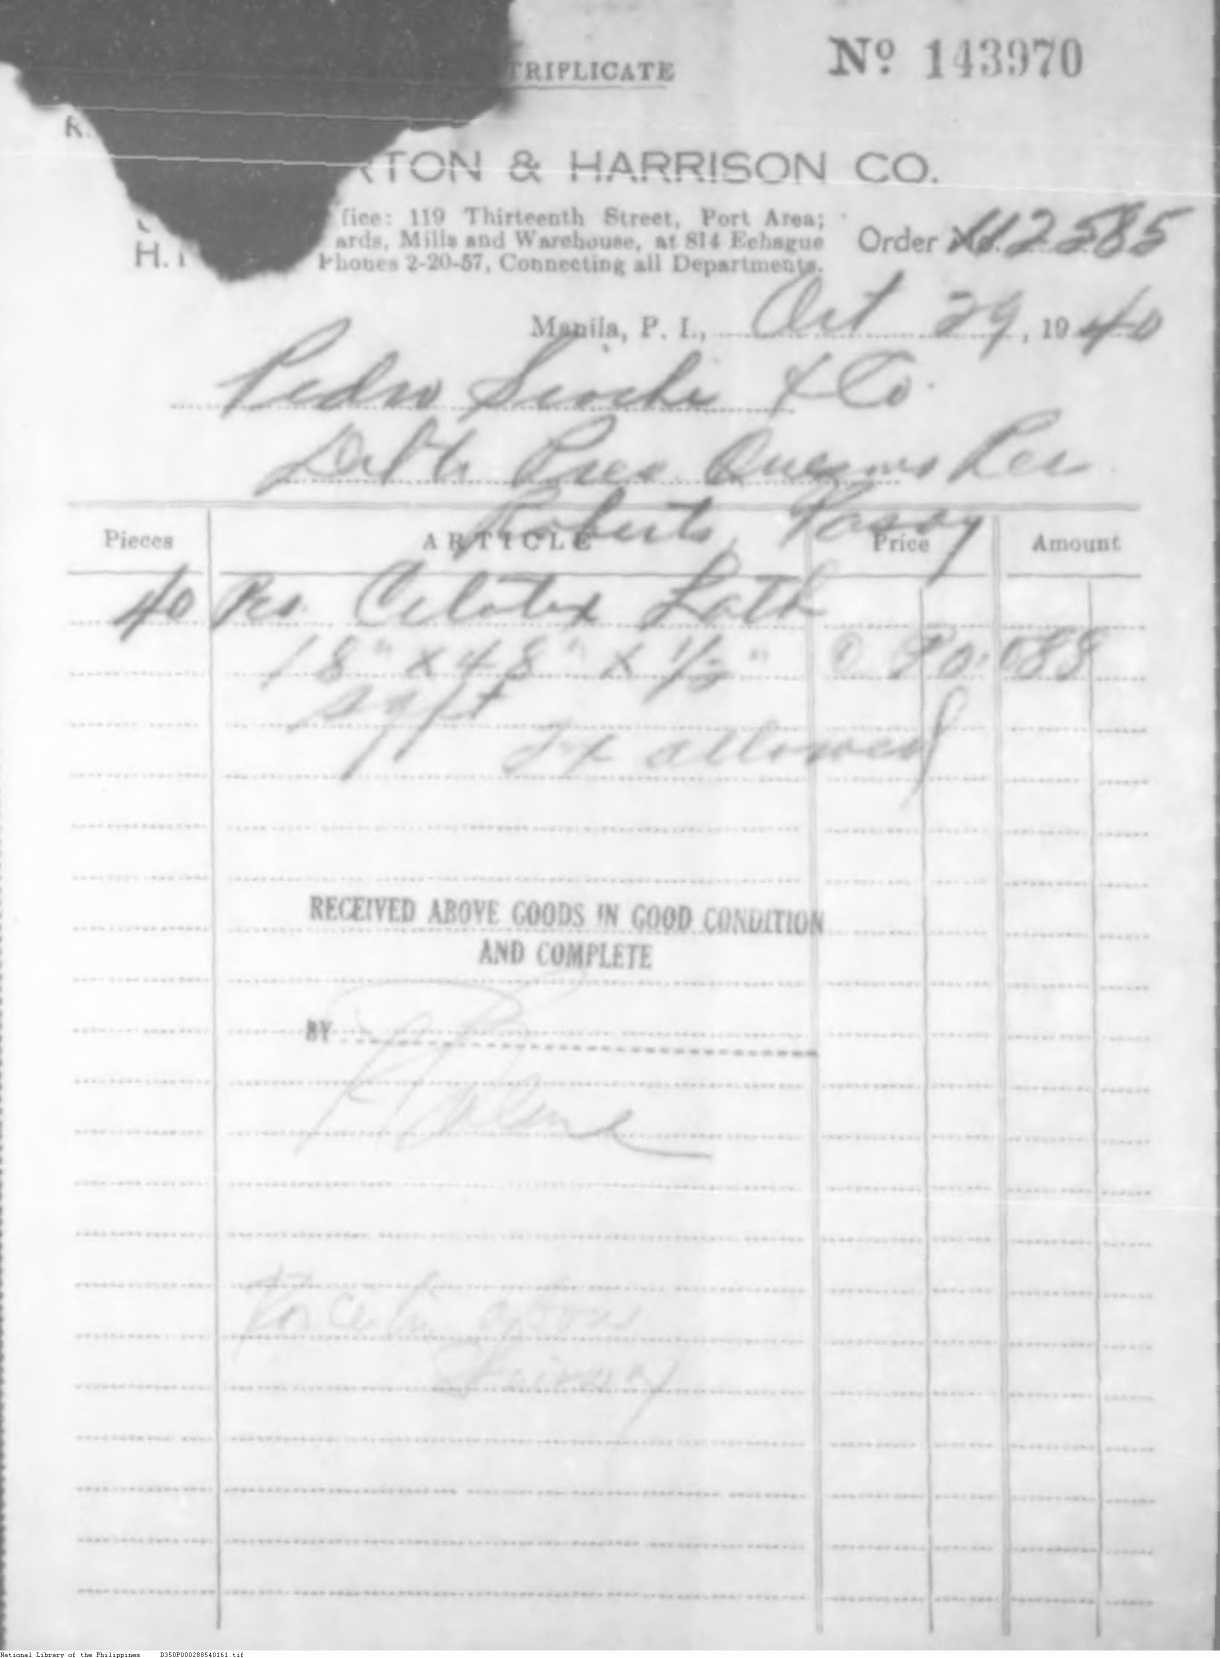 TRIPLICATE
Nº 143970
RTON & HARRISON CO.
fice: 119 Thirteenth Street, Port Area;
ards, Mills and Warehouse, at 814 Echague
Phones 2-20-57, Connecting all Departments.
H.
Order No. 112585
Manila, P. I., Oct 29, 1940
Pedro Siochi & Co.
Roberts, Pasay
Pieces ARTICLE Price Amount
40 Pcs. Celotex Lath
18" x 48" x 1/2" @ P0.088
sq/ft
allowed
RECEIVED ABOVE GOODS IN GOOD CONDITION
AND COMPLETE
BY
above
Stairway
National Library of the Philippines D350P000288540161.tif